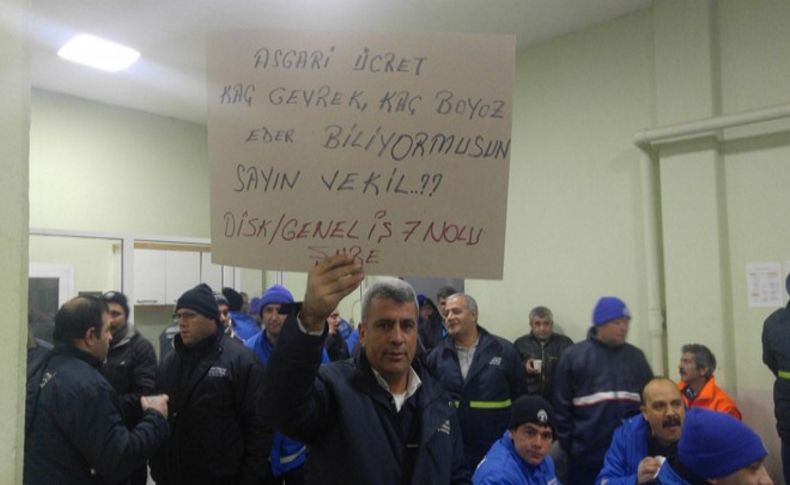 ASGARİ ÜCRET
KAÇ GEVREK, KAÇ BOYOZ
EDER BİLİYORMUSUN
SAYIN VEKİL..??
DİSK/GENEL İŞ 7 NOLU
ŞUBE